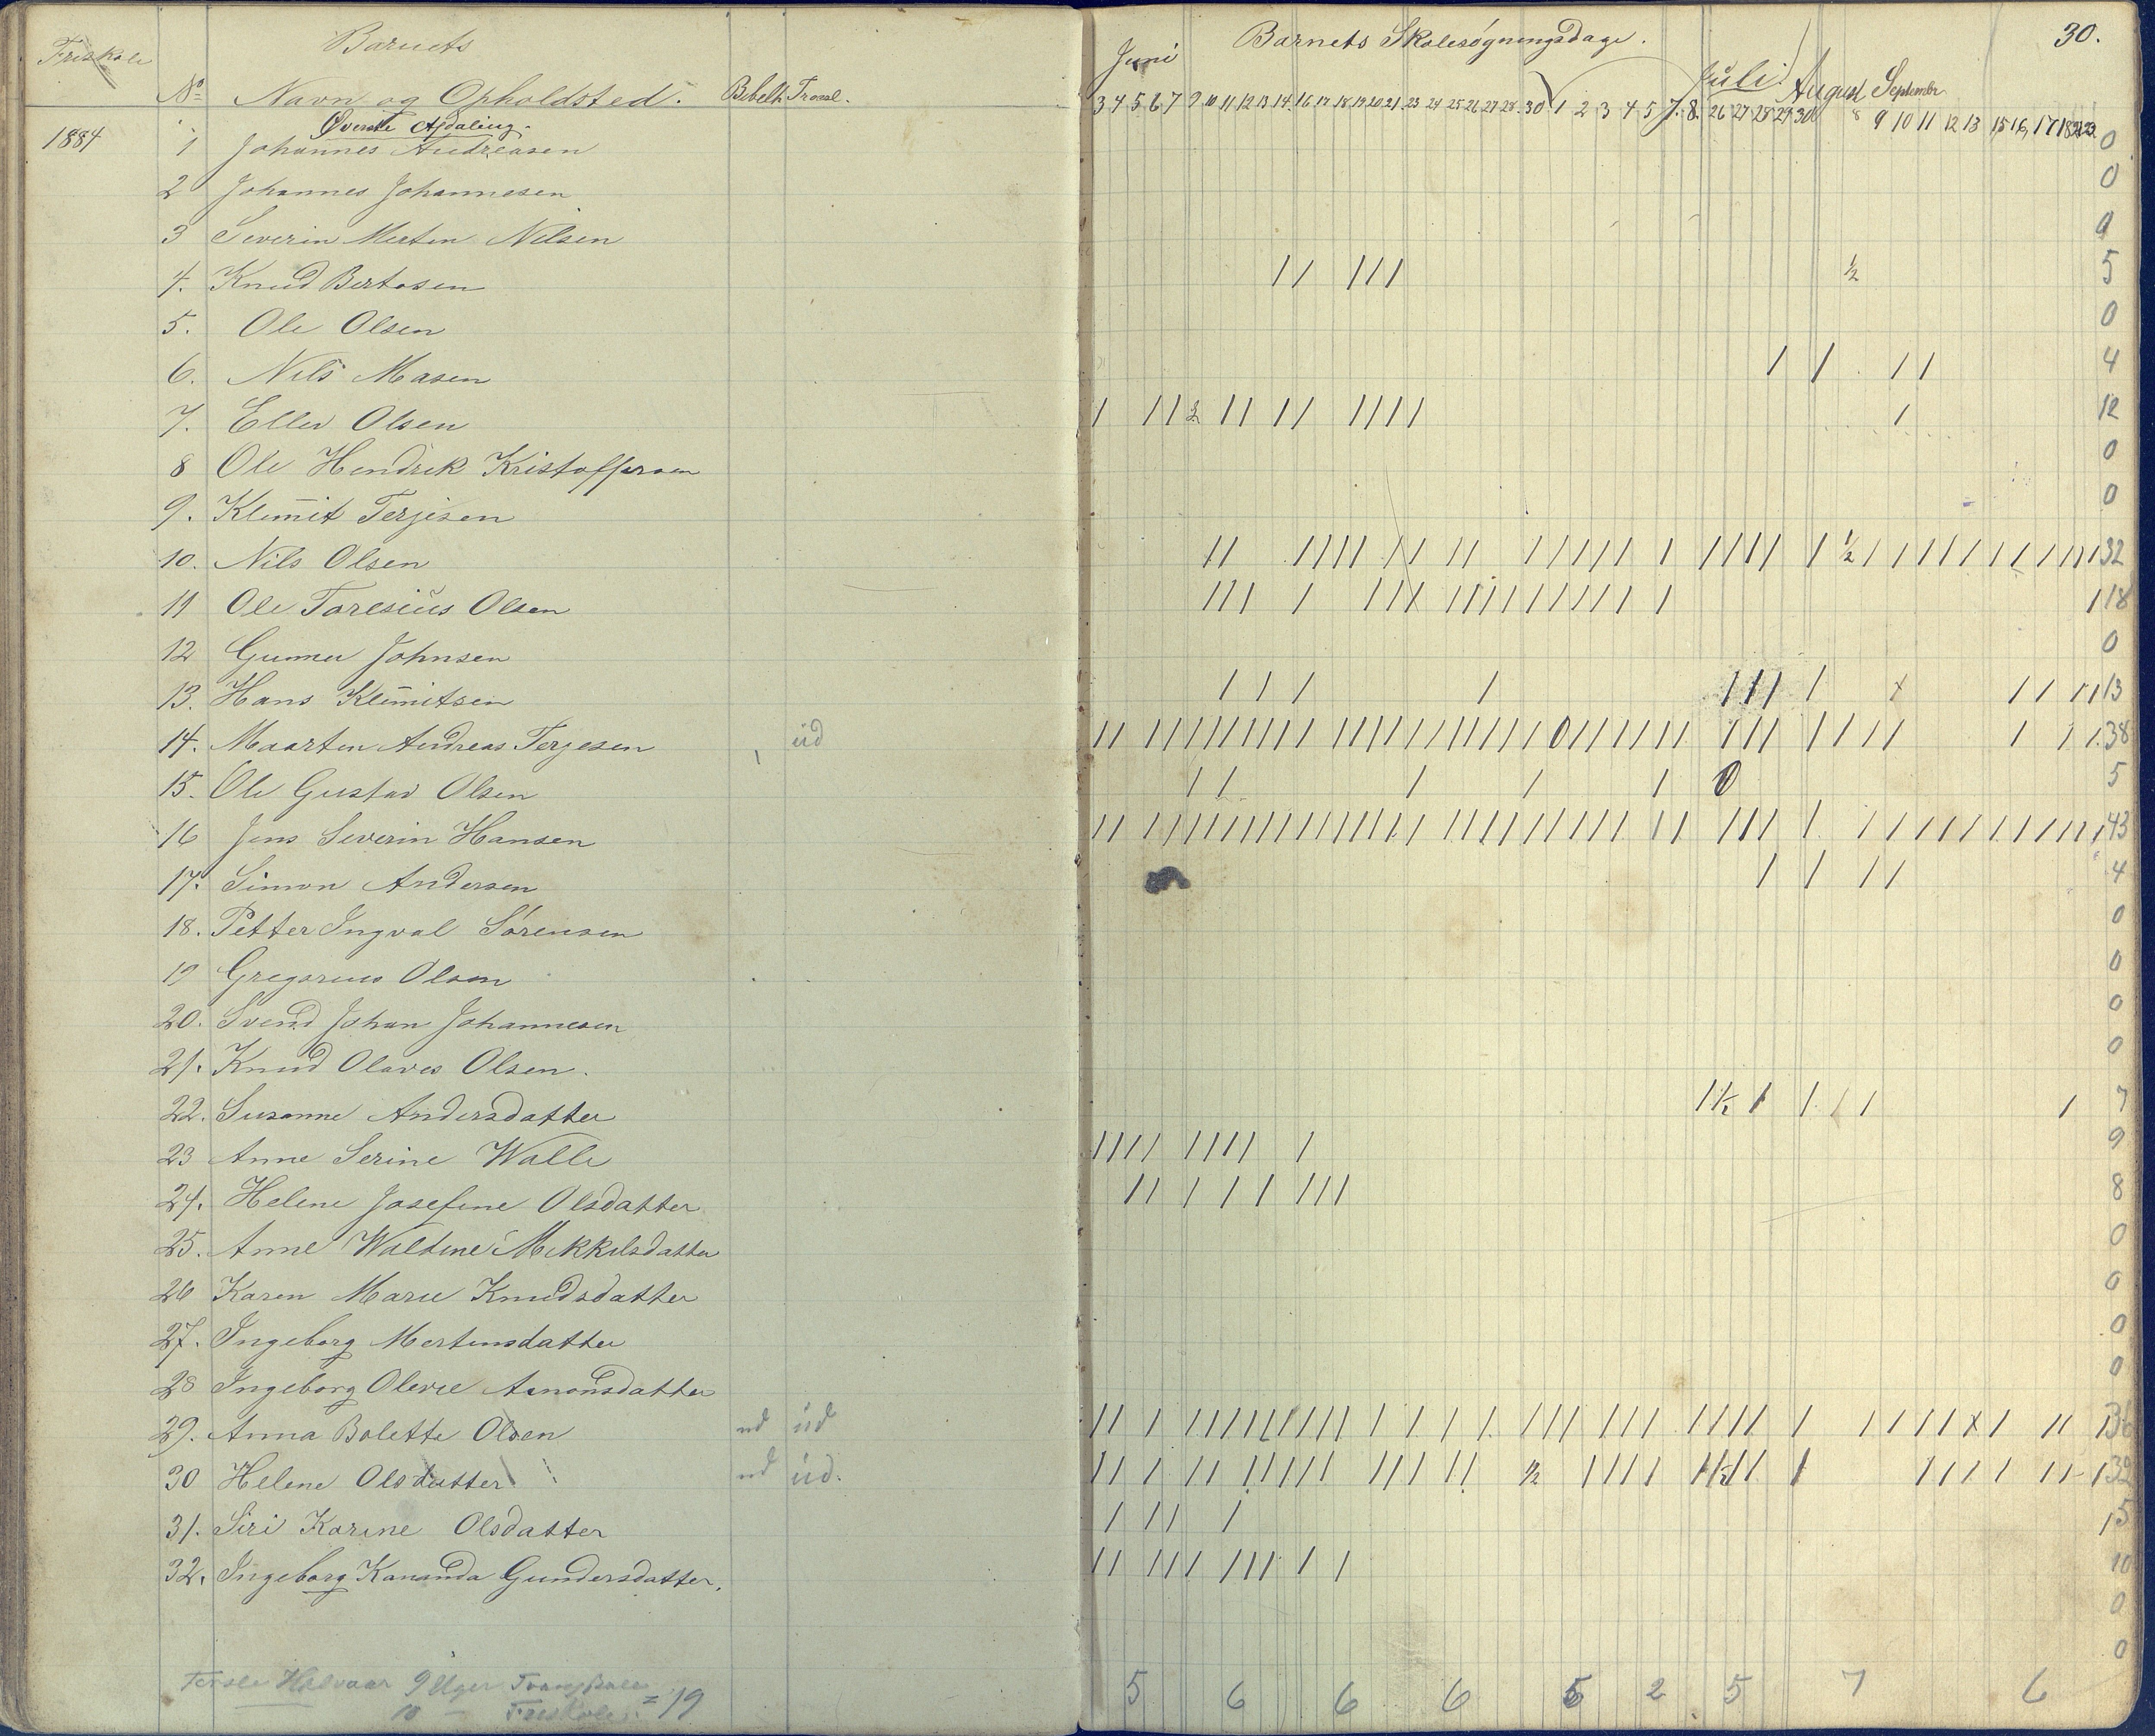 Friskole
Barnets
Barnets Skolesøgningsdage.
30.
Juni
Juli
August
September
No Navn og Opholdsted. Bibelh. Troesl.
3 4 5 6 7 9 10 11 12 13 14 16 17 18 19 20 21 23 24 25 26 27 28 30 1 2 3 4 5 7 8 26 27 28 29 30 8 9 10 11 12 13 15 16 17 18
Øverste Afdeling.
1884 1 Johannes Andreasen 0
2 Johannes Johannesen 0
3 Severin Merten Nilsen 0
4. Knud Bertosen / / / / / ½ 5
5. Ole Olsen 0
6. Nils Masen / / / / 4
7. Ellev Olsen 12
8 Ole Hendrek Kristoffersen 0
9. Klemit Terjesen 0
10. Nils Olsen ½ 32
11 Ole Taresius Olsen 18
12 Gunner Johnsen 0
13. Hans Klemitsen 13
14. Maarten Andreas Terjesen ud 38
15. Ole Gustav Olsen 5
16 Jens Severin Hansen 43
17. Simon Andersen / / / / 4
18. Petter Ingval Sørensen 0
19 Gregorius Olsen 0
20. Svend Johan Johannesen 0
21. Knud Olaves Olsen. 0
22. Susanne Andersdatter 7
23 Anne Serine Walle / / / / / / / / / 9
24. Helene Josefine Olsdatter / / / / / / / / 8
25. Anne Waldine Mikkelsdatter 0
26 Karen Marie Knudsdatter 0
27. Ingeborg Mertensdatter 0
28 Ingeborg Olevie Amonsdatter 0
29. Anna Bolette Olsen ud ud 36
30 Helene Olsdatter ud ud. ½ 32
31. Siri Karine Olsdatter / / / / / 5
32. Ingeborg Kananda Gundersdatter. / / / / / / / / / / 10
0
0
Halvaar 9 Uger
10 — Friskole = 19
5 6 6 6 5 2 5 7 6